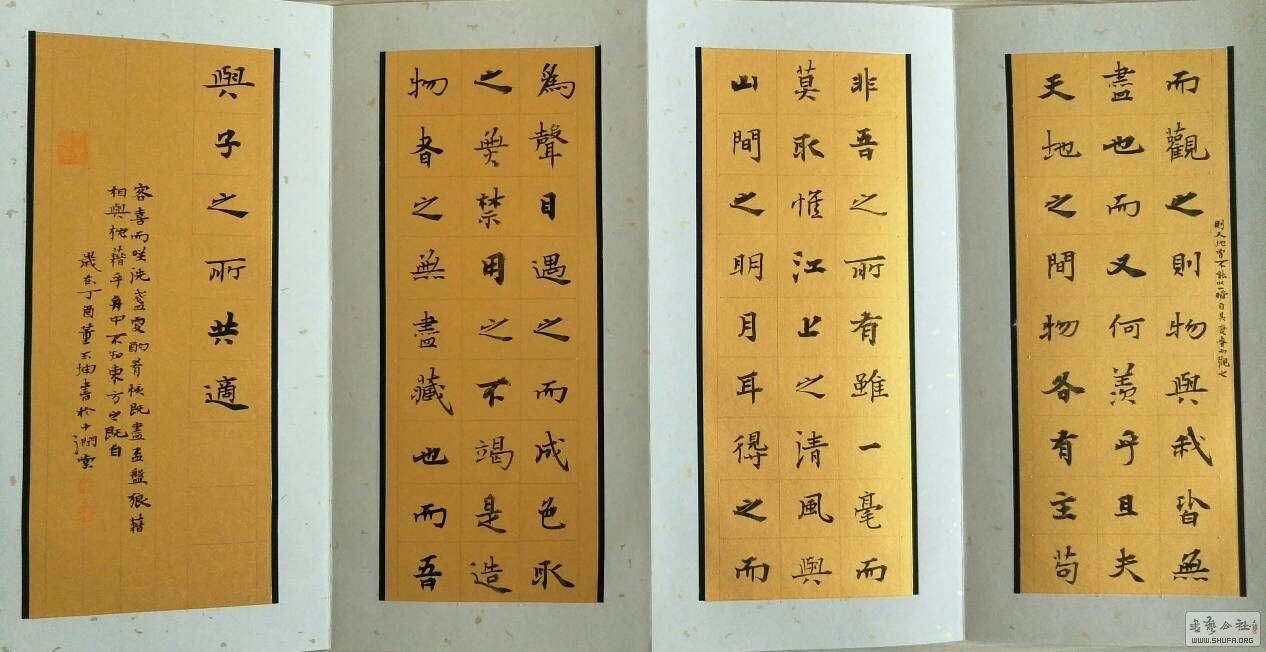 則天地曾不能以一瞬自其變者而觀之
而觀之則物與我皆無
盡也而又何羨乎且夫
天地之間物各有主苟
非吾之所有雖一毫而
莫取惟江上之清風與
山間之明月耳得之而
為聲目遇之而成色取
之無禁用之不竭是造
物者之無盡藏也而吾
與子之所共適
客喜而咲洗盞更酌肴核既盡杯盤狼藉
相與枕藉乎舟中不知東方之既白
歲在丁酉董玉坤書於
書藝公社
WWW.SHUFA.ORG